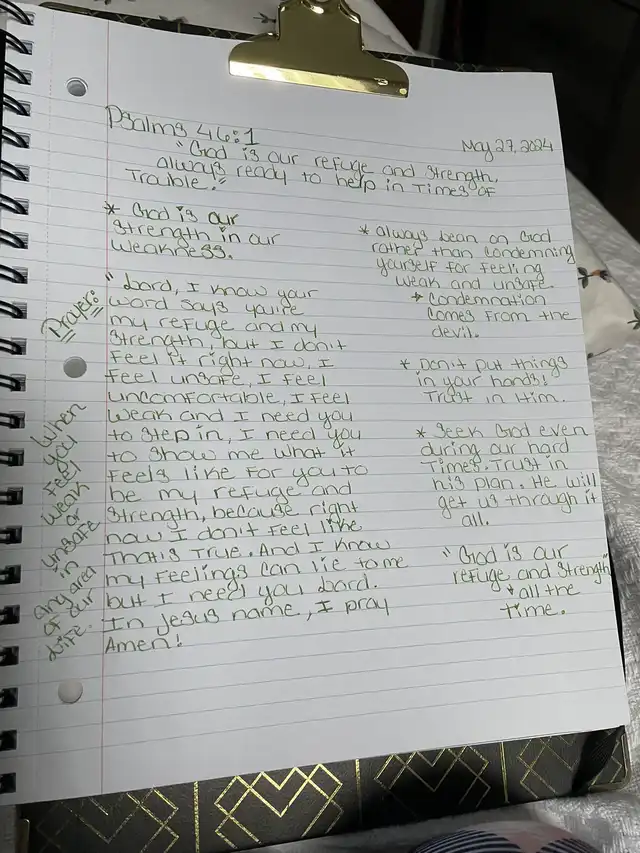 Psalms 46:1
May 27, 2024
"God is our refuge and strength,
always ready to help in times of
trouble."
* God is our
strength in our
weakness.
Prayer:
"Lord, I know your
word says you're
my refuge and my
strength, but I don't
feel it right now, I
feel unsafe, I feel
uncomfortable, I feel
weak and I need you
to step in, I need you
to show me what it
feels like for you to
be my refuge and
strength, because right
now I don't feel like
that's true. And I know
my feelings can lie to me
but I need you Lord.
In Jesus name, I pray
Amen!
When
you
feel
weak
or
unsafe
in
any area
of our
life.
* Always lean on God
rather than condemning
yourself for feeling
weak and unsafe
→ Condemnation
comes from the
devil.
* Don't put things
in your hands!
Trust in Him.
* Seek God even
during our hard
times. Trust in
his plan. He will
get us through it
all.
"God is our
refuge and strength"
→ all the
time.